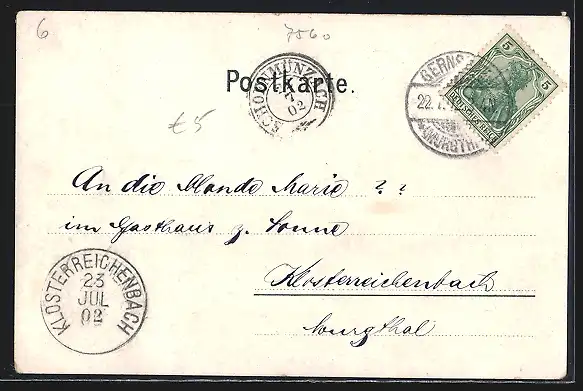 6
7560
Postkarte.
SCHÖNMÜNZACH
02
GERNS
22.7.
(MURGTH
5
5
DEUTSCHES REICH
€5
An die blonde Marie ? ?
im Gasthaus z. Sonne
Klosterreichenbach
Murgthal
KLOSTERREICHENBACH
23
JUL
02